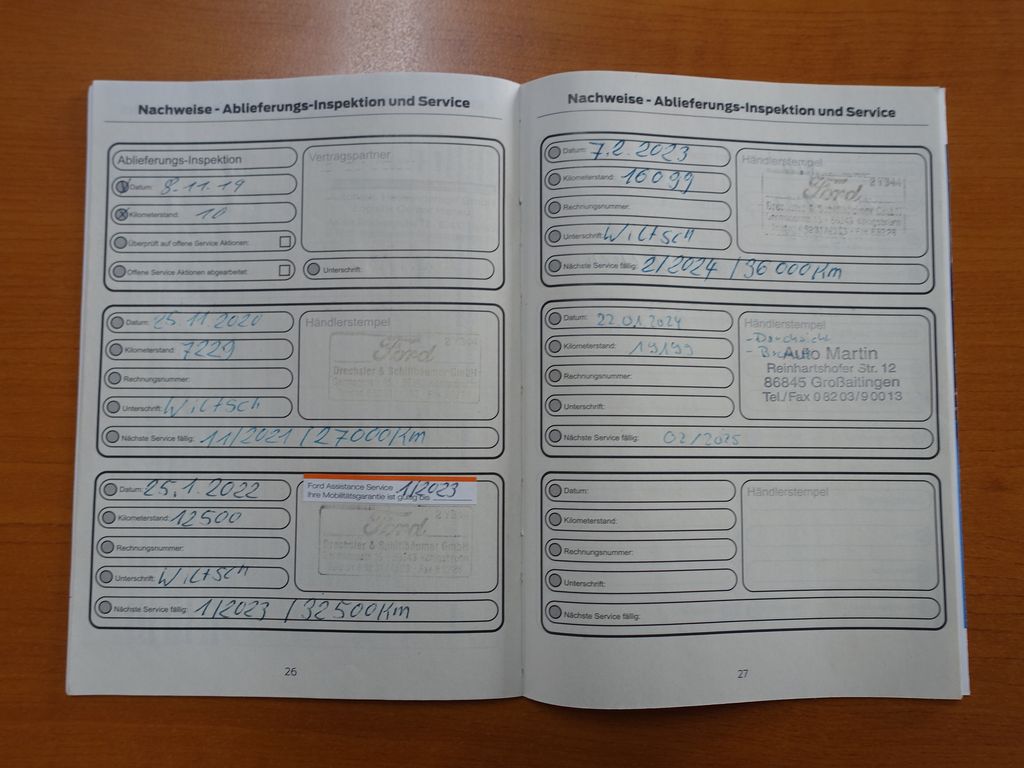 Nachweise - Ablieferungs-Inspektion und Service
Ablieferungs-Inspektion
Vertragspartner
Datum: 8.11.19
Kilometerstand: 10
Überprüft auf offene Service Aktionen:
Offene Service Aktionen abgearbeitet:
Unterschrift:
Datum: 25.11.2020
Händlerstempel
Kilometerstand: 7229
Ford
Drechsler & Schillbäumer GmbH
Rechnungsnummer:
Unterschrift: Wiltsch
Nächste Service fällig: 11/2021 / 27000Km
Datum: 25.1.2022
Ford Assistance Service 1/2023
Ihre Mobilitätsgarantie ist gültig bis
Kilometerstand: 12500
Ford
Drechsler & Schillbäumer GmbH
Rechnungsnummer:
Unterschrift: Wiltsch
Nächste Service fällig: 1/2023 / 32500Km
26
Nachweise - Ablieferungs-Inspektion und Service
Datum: 7.2.2023
Händlerstempel
Kilometerstand: 16099
Ford
Rechnungsnummer:
Unterschrift: Wiltsch
Nächste Service fällig: 2/2024 / 36000Km
Datum: 22.01.2024
Händlerstempel
- Durchsicht
Kilometerstand: 19199
Auto Martin
Reinhartshofer Str. 12
86845 Großaitingen
Tel./Fax 08203/90013
Rechnungsnummer:
Unterschrift:
Nächste Service fällig: 02/2025
Datum:
Händlerstempel
Kilometerstand:
Rechnungsnummer:
Unterschrift:
Nächste Service fällig:
27